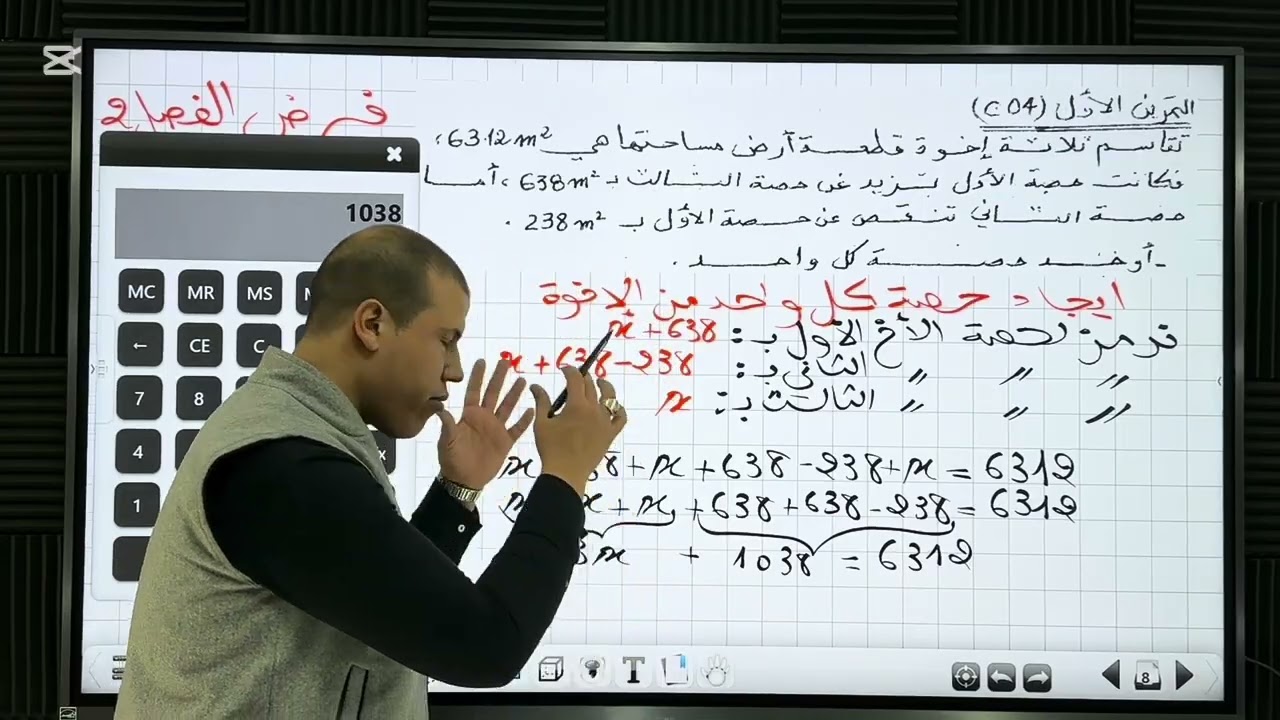 فرض الفصل 2
التمرين الأول (04 ن)
تقاسم ثلاثة إخوة قطعة أرض مساحتها هي 6312 m²،
فكانت حصة الأول تزيد عن حصة الثالث بـ 638 m²، أما
حصة الثاني تنقص عن حصة الأول بـ 238 m².
- أوجد حصة كل واحد.
ايجاد حصة كل واحد من الإخوة
نرمز لحصة الأخ الأول بـ: x + 638
〃 〃 〃 الثاني بـ: x + 638 - 238
〃 〃 〃 الثالث بـ: x
x 38 + x + 638 - 238 + x = 6312
x + x + 638 + 638 - 238 = 6312
3x + 1038 = 6312
1038
MC MR MS
← CE C
7 8
4
1
T
8